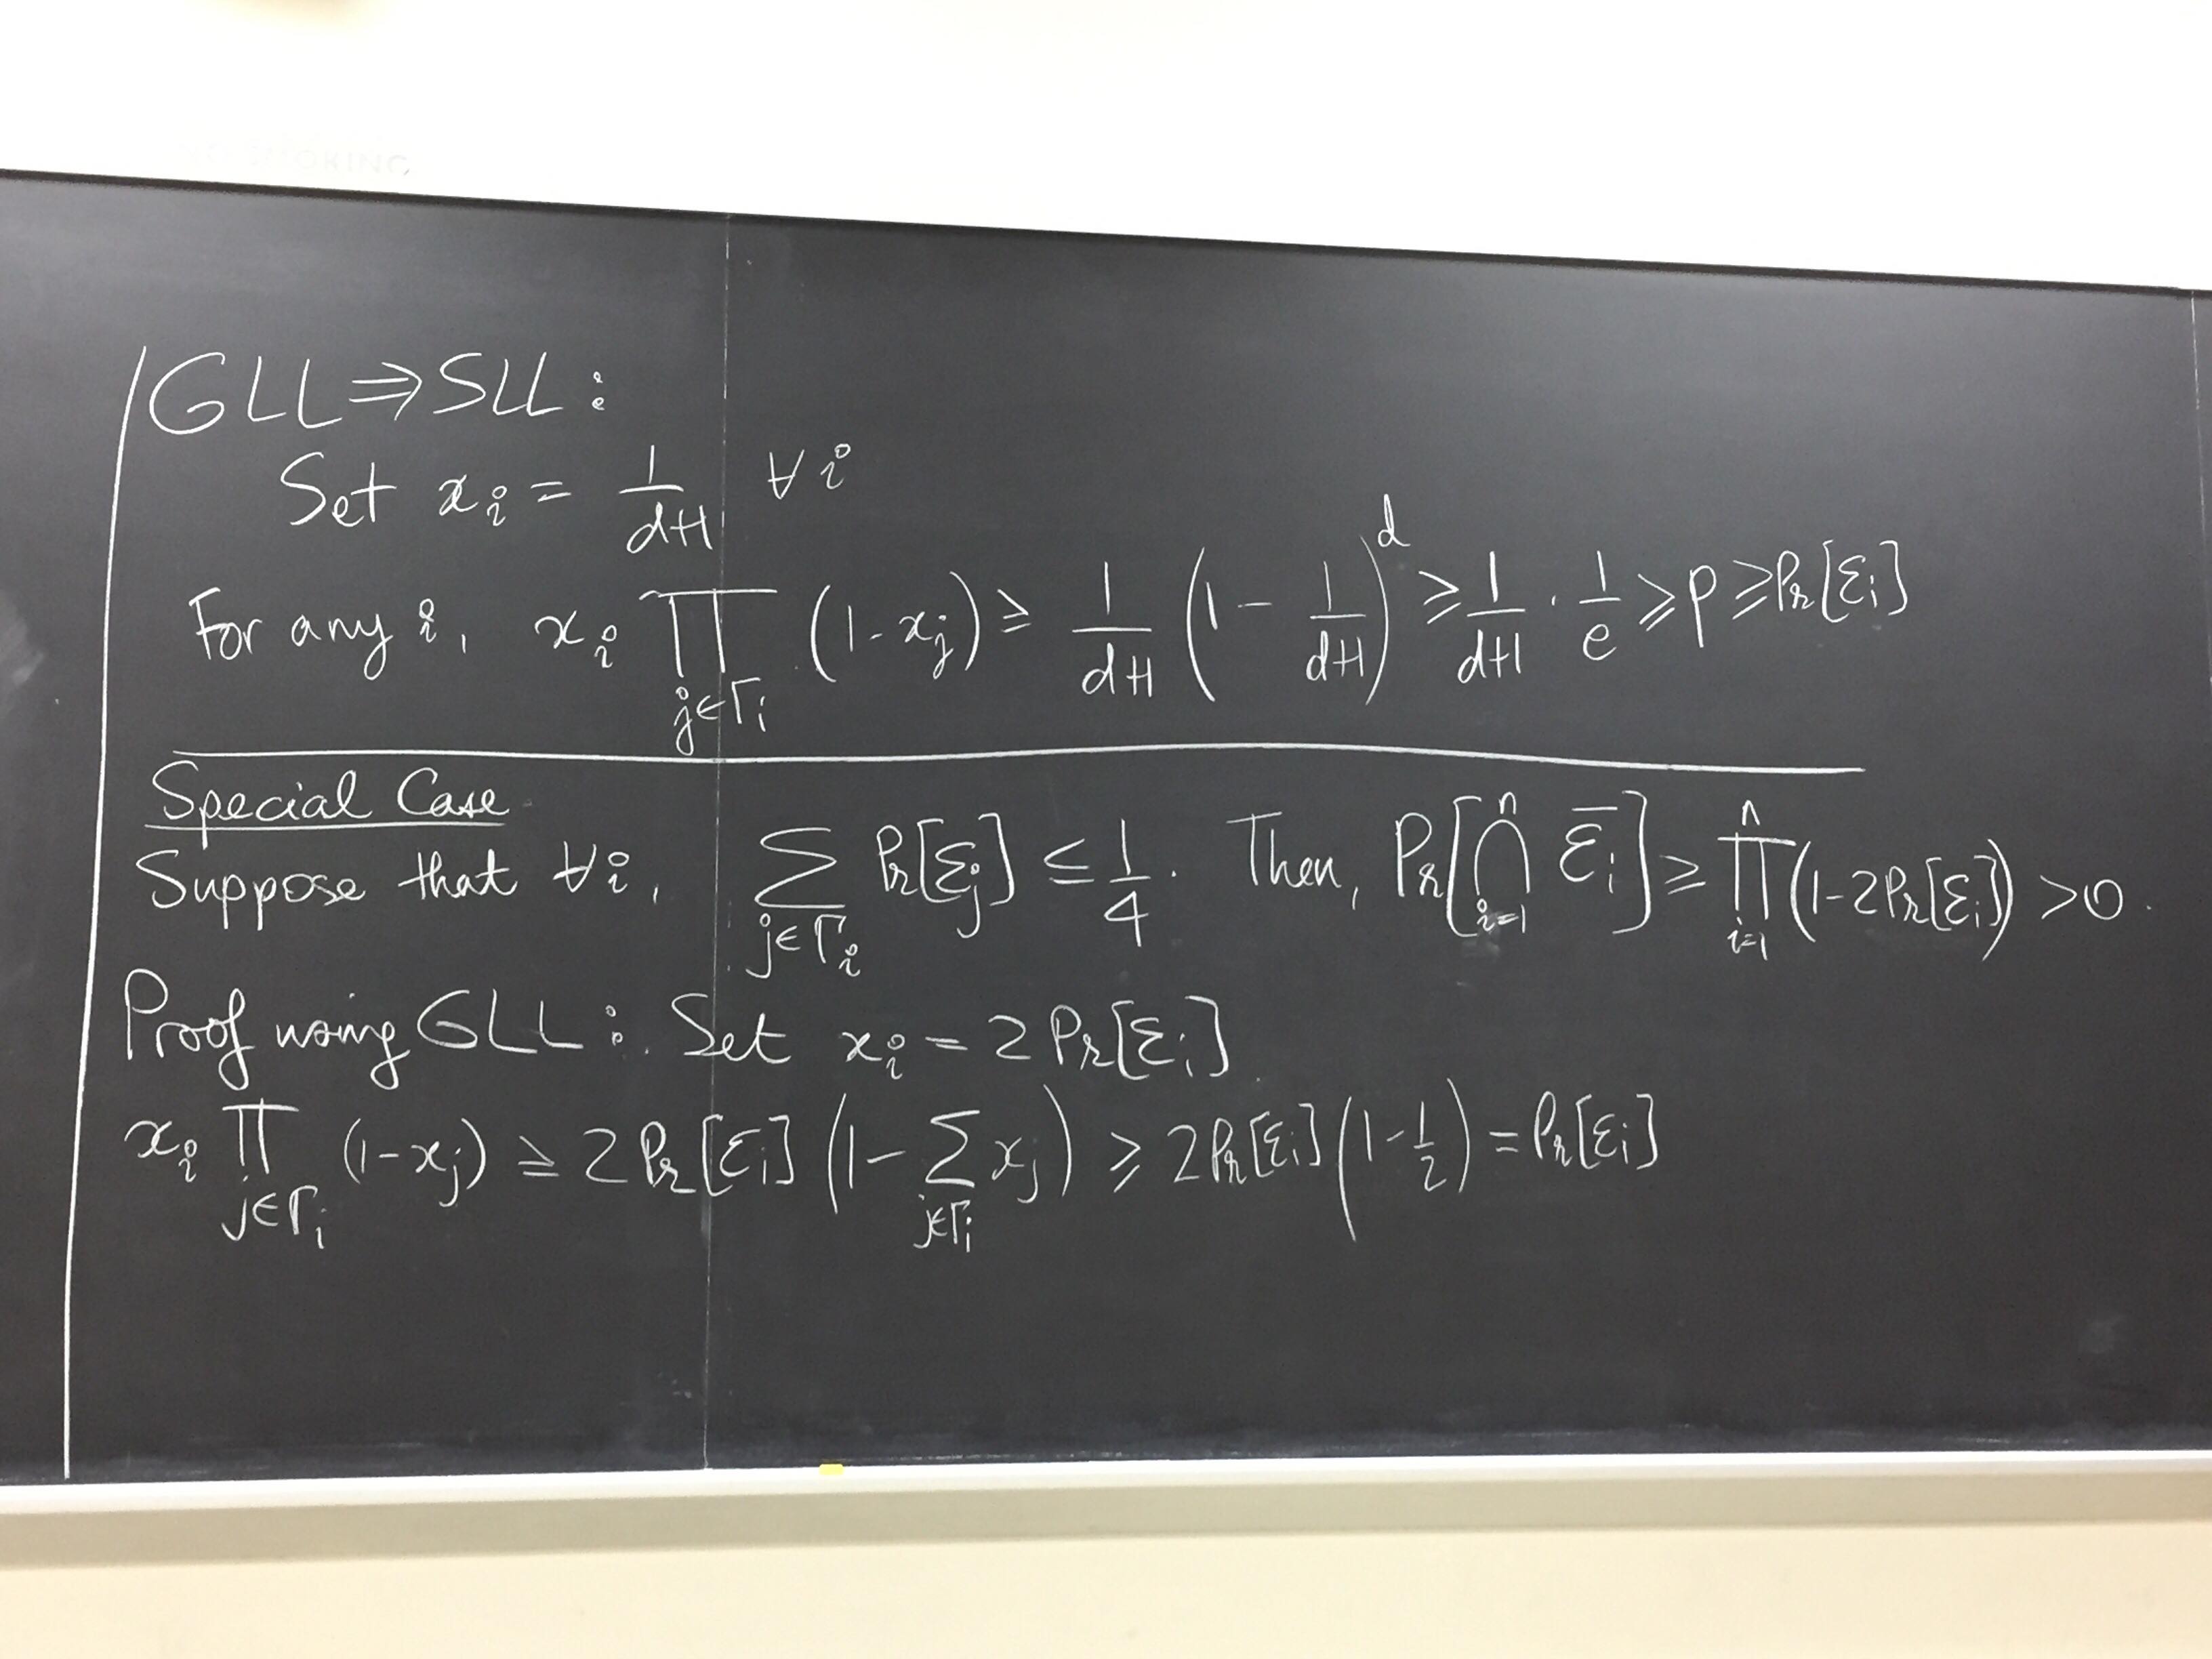 GLL ⇒ SLL :
Set x_i = 1/(d+1) ∀ i
For any i, x_i ∏_{j∈Γ_i} (1-x_j) ≥ 1/(d+1) (1 - 1/(d+1))^d ≥ 1/(d+1) · 1/e ≥ p ≥ Pr[ℰ_i]
Special Case
Suppose that ∀i, ∑_{j∈Γ_i} Pr[ℰ_j] ≤ 1/4. Then, Pr[⋂_{i=1}^n \overline{ℰ_i}] ≥ ∏_{i=1}^n (1-2Pr[ℰ_i]) > 0.
Proof using GLL : Set x_i = 2 Pr[ℰ_i]
x_i ∏_{j∈Γ_i} (1-x_j) ≥ 2 Pr[ℰ_i] (1 - ∑_{j∈Γ_i} x_j) ≥ 2Pr[ℰ_i] (1 - 1/2) = Pr[ℰ_i]